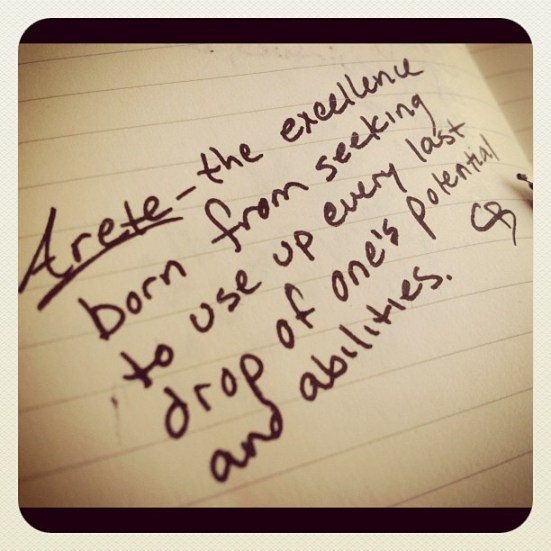 Arete - the excellence
born from seeking
to use up every last
drop of one's potential
and abilities.